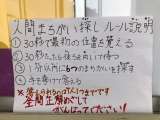 人間まちがい探し ルール説明
①30秒で最初の位置を覚える
②30秒たったら後ろを向いて待つ
③1分以内に6つのまちがいを探す
④手を挙げて答える
※答えられるのは1人1つまでです
全問正解めざして
がんばってください!